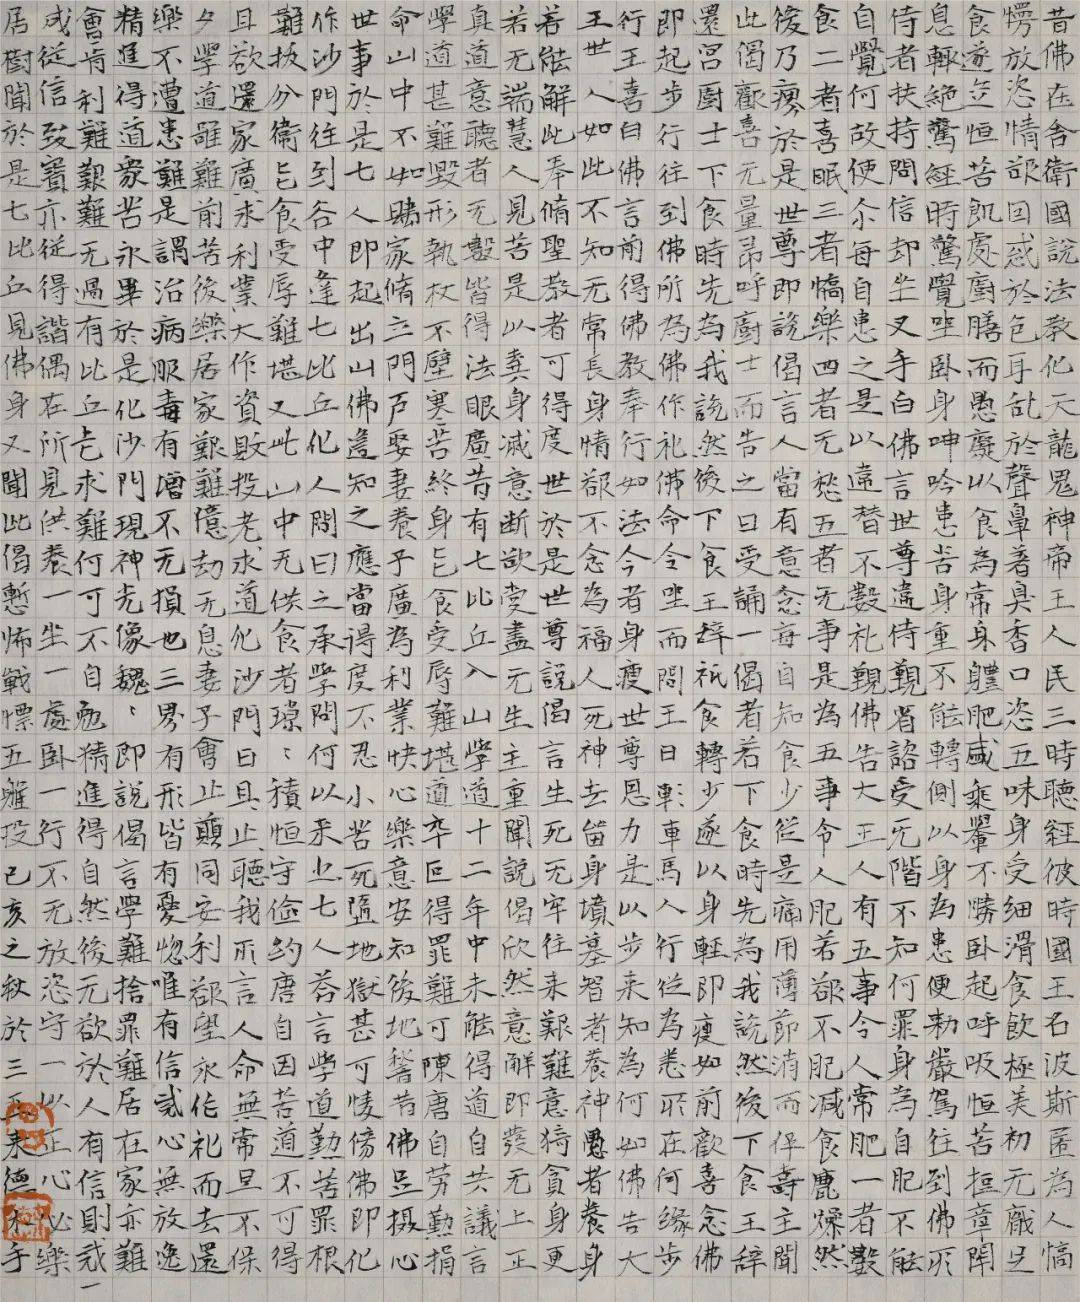 昔佛在舍衛國說法教化天龍鬼神帝王人民三時聽經彼時國王名波斯匿為人憍
愕放恣情欲回惑於色耳乱於聲鼻著臭香口恣五味身受細滑食飲極美初无厭足
食遂至恒苦飢處廚膳而愚癡以食為常身體肥盛乘轝不勝臥起呼吸恒苦
息輒絕驚經時驚覺坐臥身呻吟患苦身重不能轉側以身為患便勅嚴駕往到佛所
侍者扶持問信却坐叉手白佛言世尊違侍覲省諮受无階不知何罪身為自肥不能
自覺何故使尒每自患之是以違替不數礼覲佛告大王人有五事令人常肥一者數
食二者喜眠三者憍樂四者无愁五者无事是為五事令人肥若欲不肥減食麁燥然
後乃瘦於是世尊即說偈言人當有意念每自知食少從是痛用薄節消而保壽王聞
此偈歡喜无量即呼廚士而告之曰受誦一偈者若下食時先為我說然後下食王辞
還宮廚士下食時先為我說然後下食王辞祇食轉少遂以身輕即瘦如前歡喜念佛
即起步行往到佛所為佛作礼佛命令坐而問王曰車馬人行從為悉所在何緣步
行王喜白佛言前得佛教奉行如法今者身瘦世尊恩力是以步来知為何如佛告大
王世人如此不知无常長身情欲不念為福人死神去留身墳墓智者養神愚者養身
若能解此奉脩聖教者可得度世於是世尊說偈言生死无牢往来艱難意猗貪身更
若无端慧人見苦是以棄身滅意断欲愛盡无生主重聞說偈欣然意解即發无上正
真道意聽者无數皆得法眼廣昔有七比丘入山學道十二年中未能得道自共議言
學道甚難毀形執杖不避寒苦終身乞食受辱難堪道卒叵得罪難可陳唐自劳勤捐
命山中不如歸家脩立門戸娶妻養子廣為利業快心樂意安知後地昔佛足摄心
世事於是七人即起出山佛遥知之應當得度不忍小苦死墮地獄甚可憐傷佛即化
作沙門往到谷中逢七比丘化人問曰之承學問何以来出七人荅言學道勤苦罪根
難拔分衛乞食受辱難堪又此山中无供食者璟〻積恒守儉約唐自困苦道不可得
且欲還家廣求利業大作資貶投老求道化沙門曰且止聽我所言人命無常旦不保
夕學道雖難前苦後樂居家艱難億劫无息妻子會止願同安利欲望永作礼而去還
樂不遭患難是謂治病服毒有增不无損也三界有形皆有憂惱唯有信戒心無放逸
精進得道衆苦永畢於是化沙門現神光像魏〻即說偈言學難捨罪難居在家亦難
會肯利難艱難无過有比丘乞求難何可不自勉精進得自然後无欲於人有信則戒一
成従信致寶亦従得諧偶在所見供養一坐一處臥一行不无放恣守一以正心心樂
居樹聞於是七比丘見佛身又聞此偈慙怖戰慄五雖投己亥之秋於三東德和手